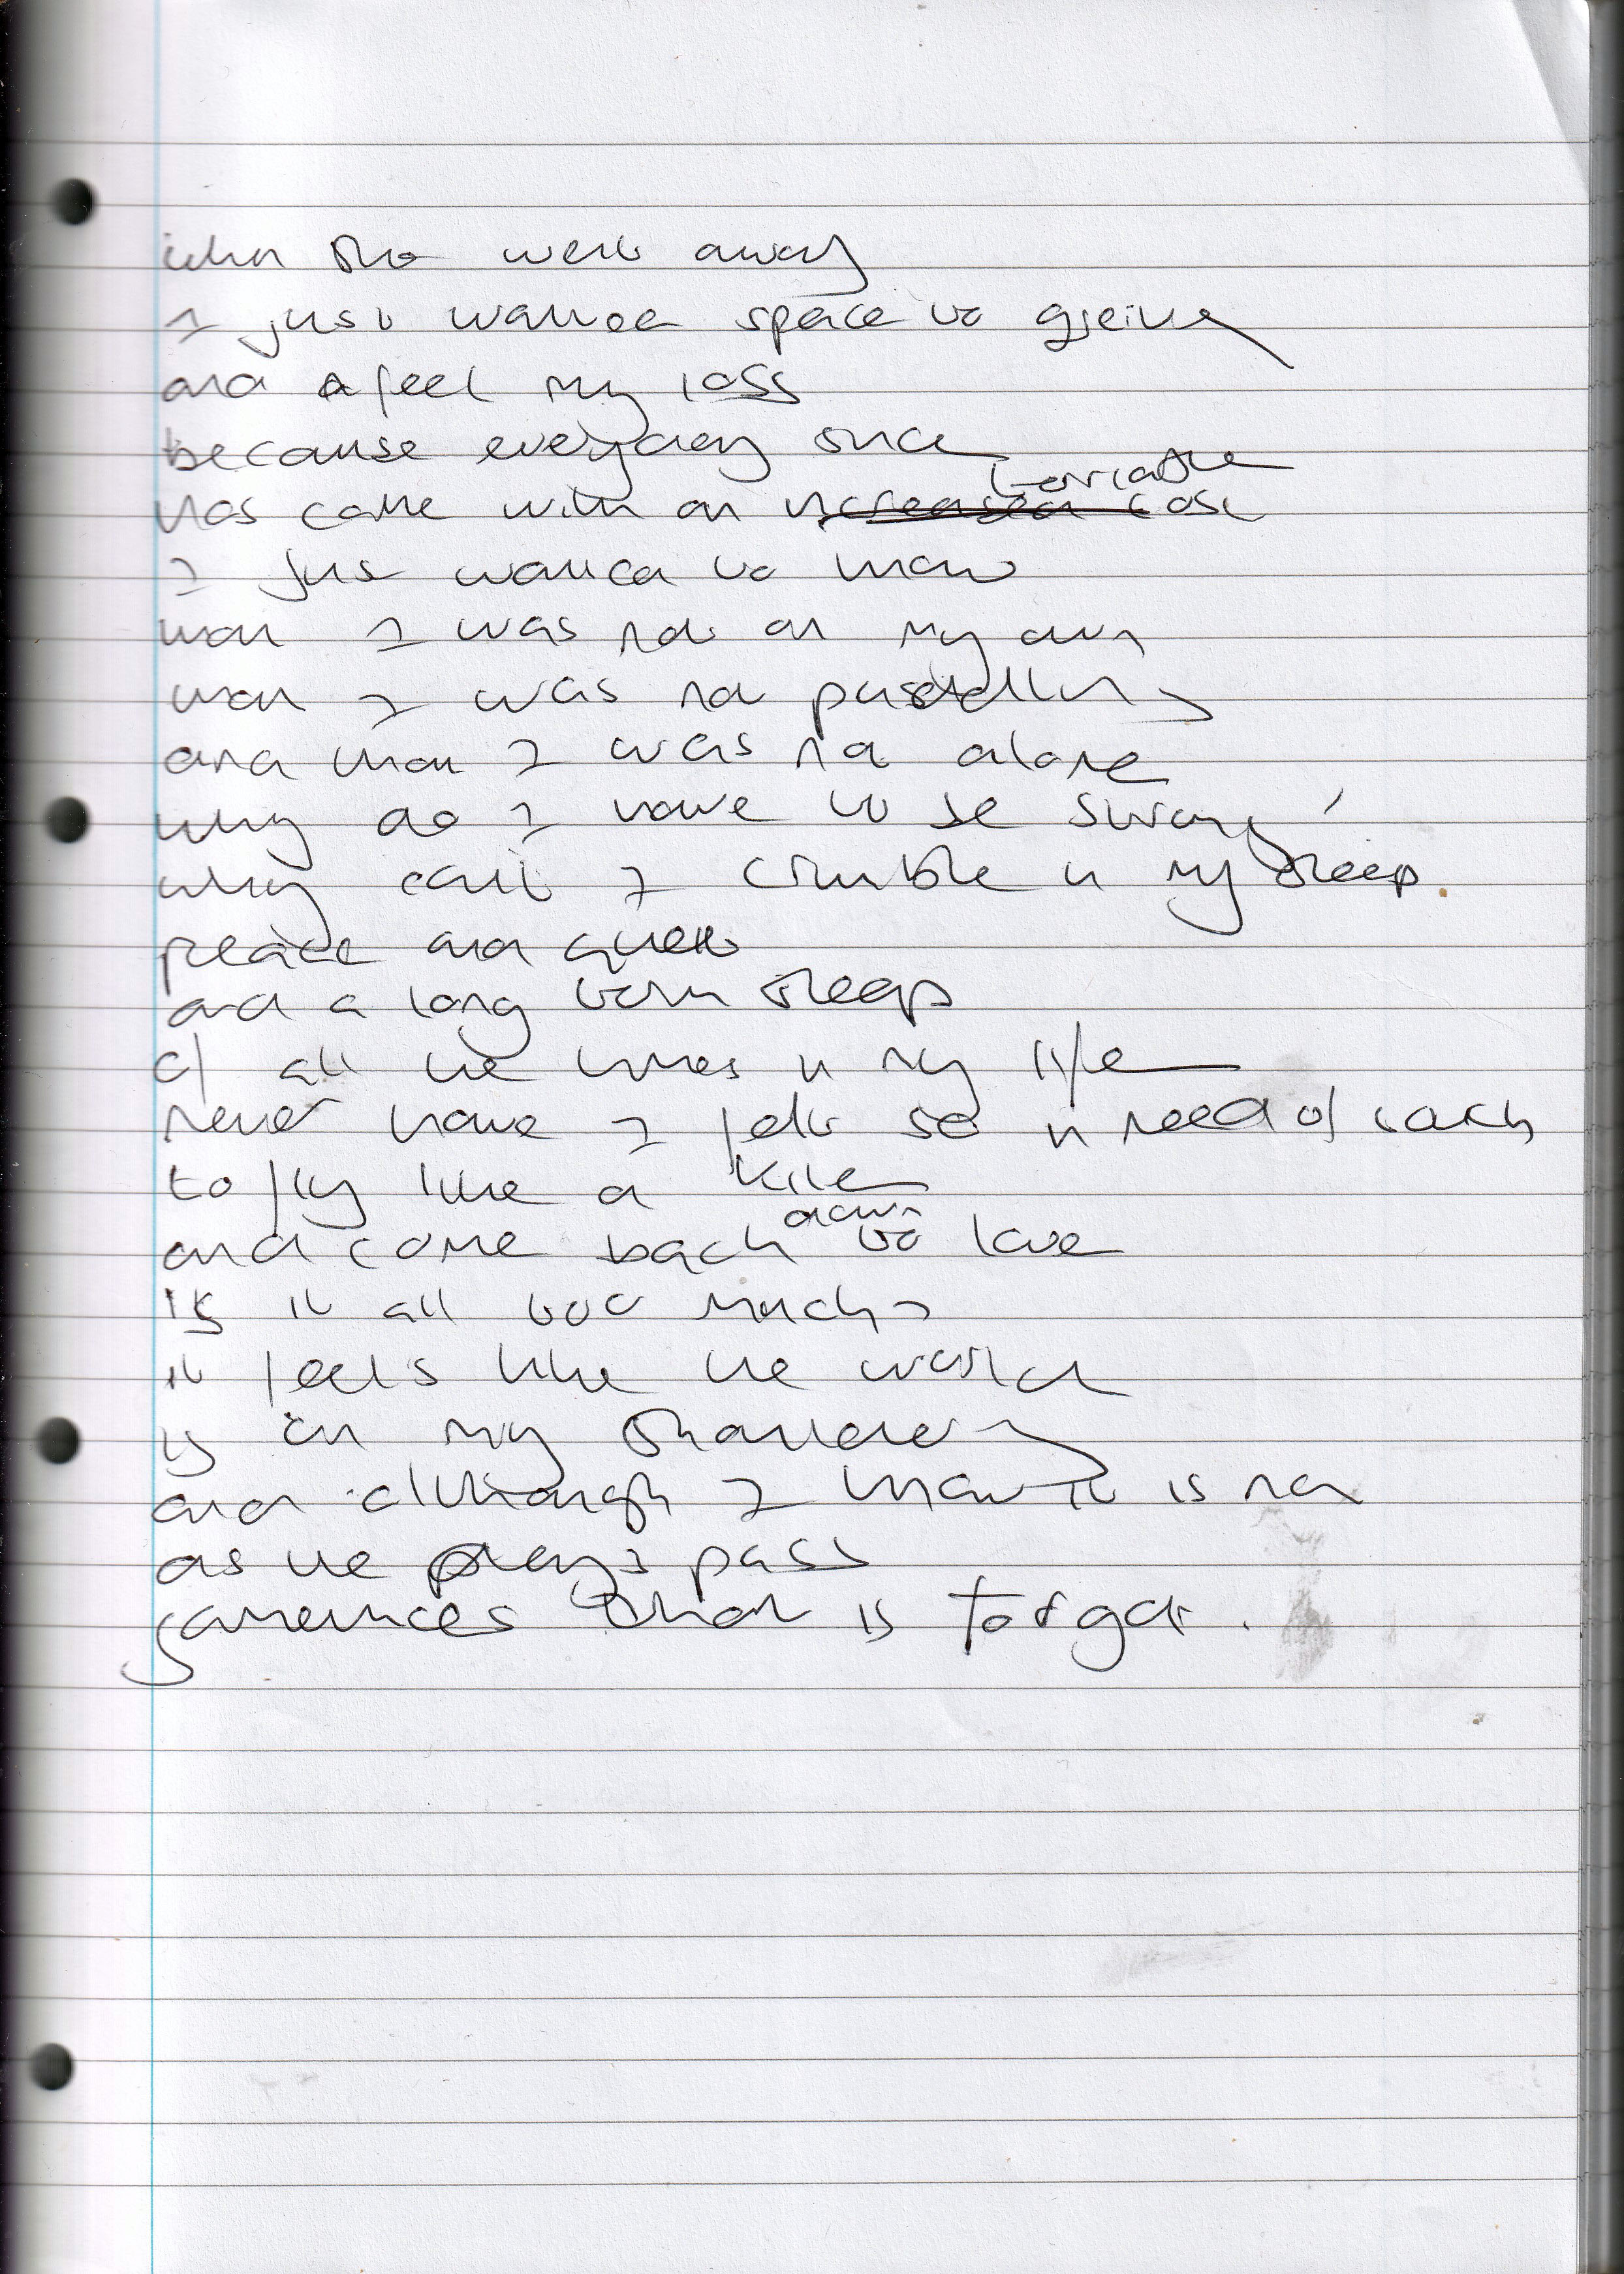 when she went away
I just wanted space to grieve
and feel my loss
because everyday since
has come with an increased cost
terrible
I just wanted to know
that I was not on my own
that I was not
and that I was not alone
why do I have to be strong
why can't I crumble in my sleep
peace and quiet
and a long term sleep
of all the times in my life
never have I felt so in need of
to fly like a kite
and come back down to love
is it all too much?
it feels like the world
is on my shoulders
and although I know it is not
as the days pass
sometimes that is forgot.